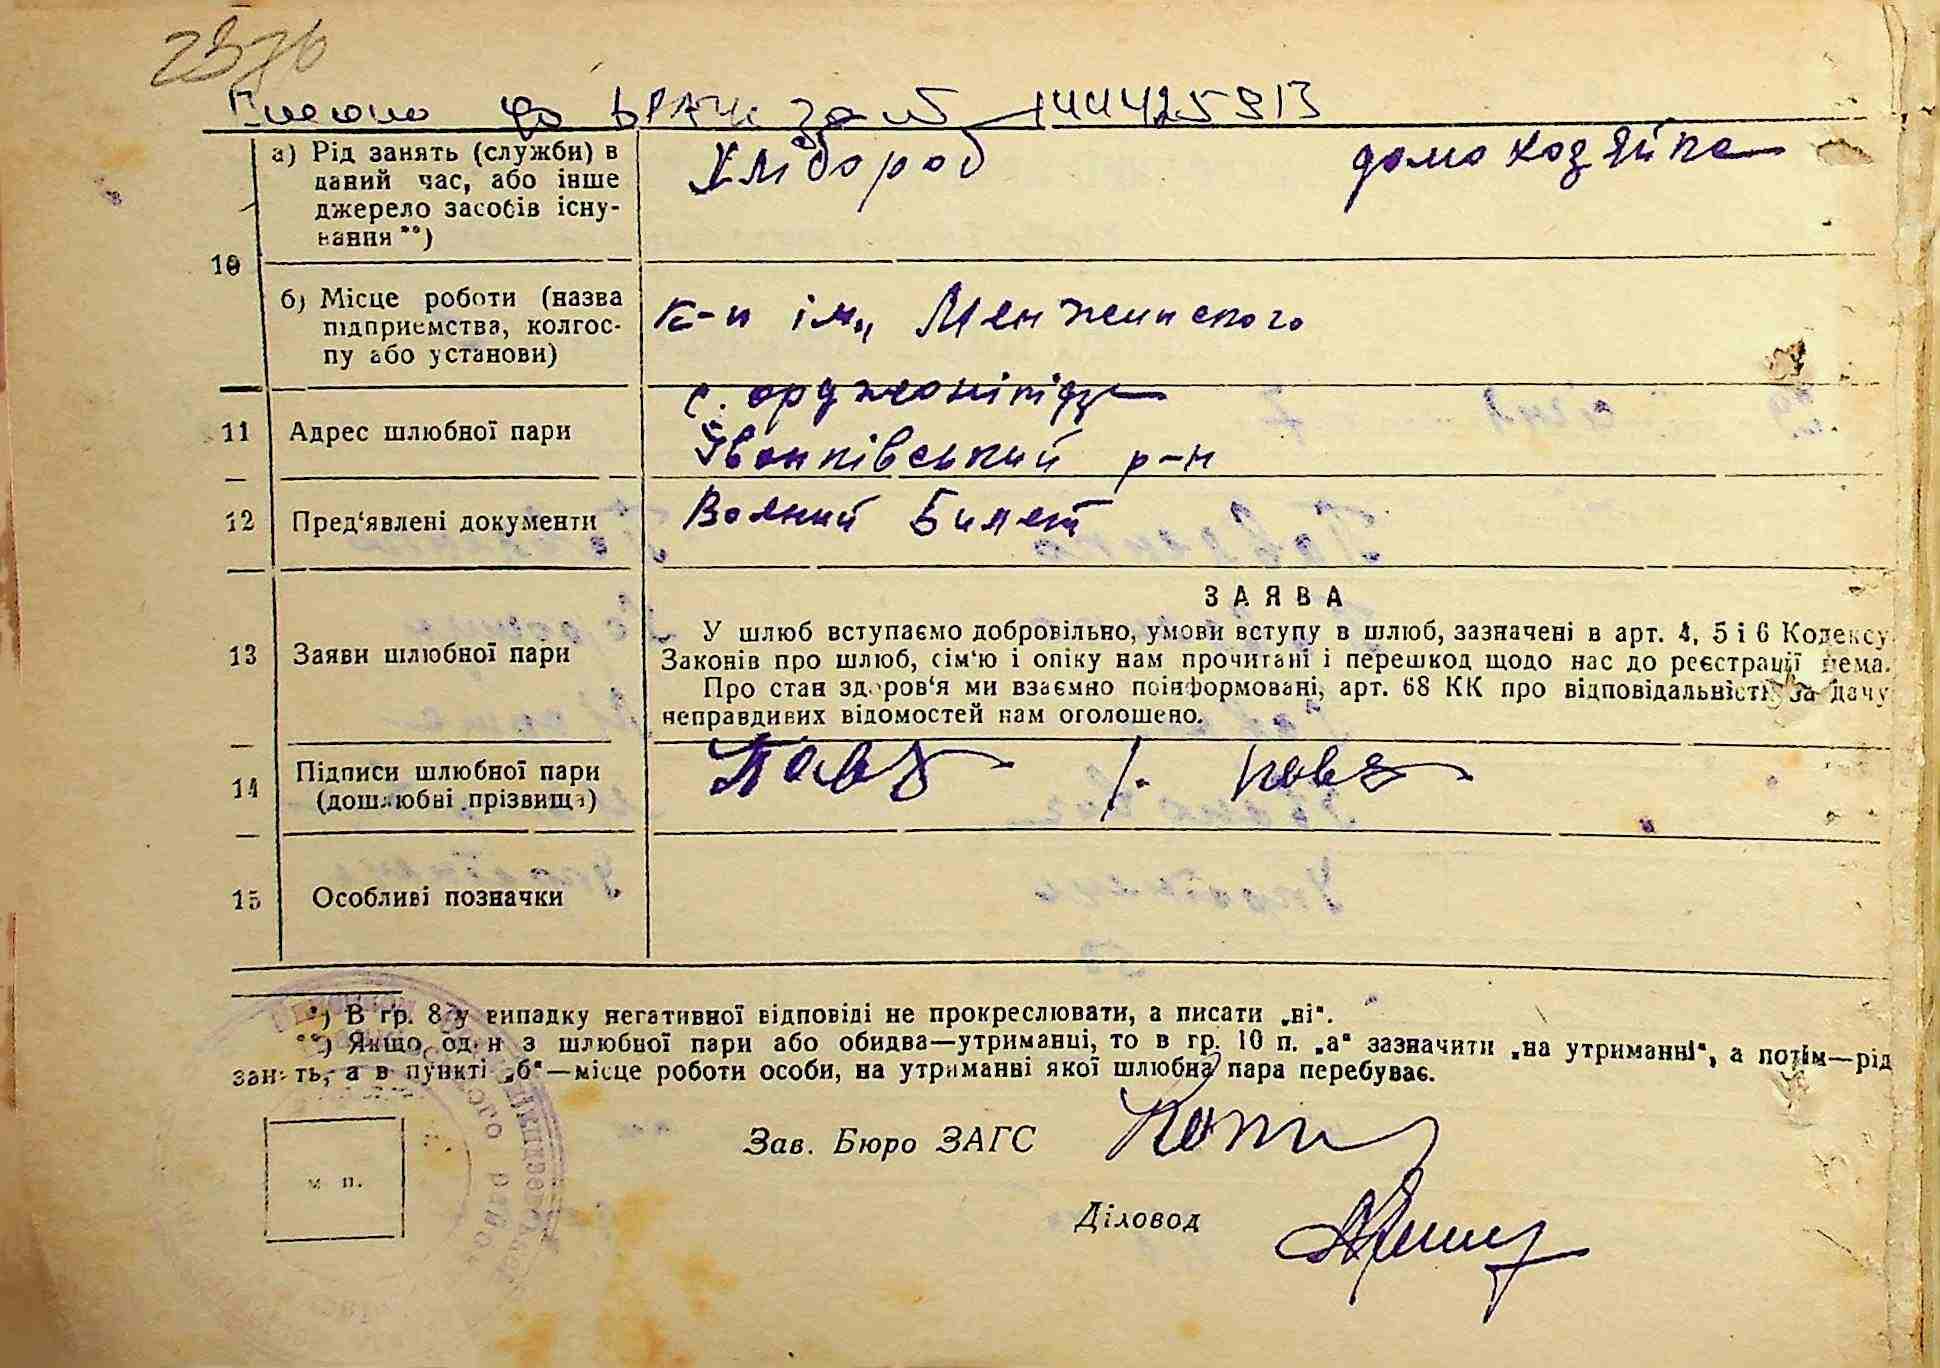 2376
Внесено до ДРАЦС за № 144425913
10
а) Рід занять (служби) в
даний час, або інше
джерело засобів існу-
вання **)
Хлібороб домохозяйка
б) Місце роботи (назва
підприємства, колгос-
пу або установи)
к-п ім. Менжинского
11 Адрес шлюбної пари
с. орджонікідзе
Іванківський р-н
12 Пред'явлені документи
Воєний Билет
ЗАЯВА
13 Заяви шлюбної пари
У шлюб вступаємо добровільно, умови вступу в шлюб, зазначені в арт. 4, 5 і 6 Кодексу
Законів про шлюб, сім'ю і опіку нам прочитані і перешкод щодо нас до реєстрації нема.
Про стан здоров'я ми взаємно поінформовані, арт. 68 КК про відповідальність за дачу
неправдивих відомостей нам оголошено.
14 Підписи шлюбної пари
(дошлюбні прізвища)
15 Особливі позначки
*) В гр. 8 у випадку негативної відповіді не прокреслювати, а писати „ні“.
**) Якщо один з шлюбної пари або обидва—утриманці, то в гр. 10 п. „а“ зазначити „на утриманні“, а потім—рід
занять, а в пункті „б“—місце роботи особи, на утриманні якої шлюбна пара перебуває.
м п.
Зав. Бюро ЗАГС
Діловод